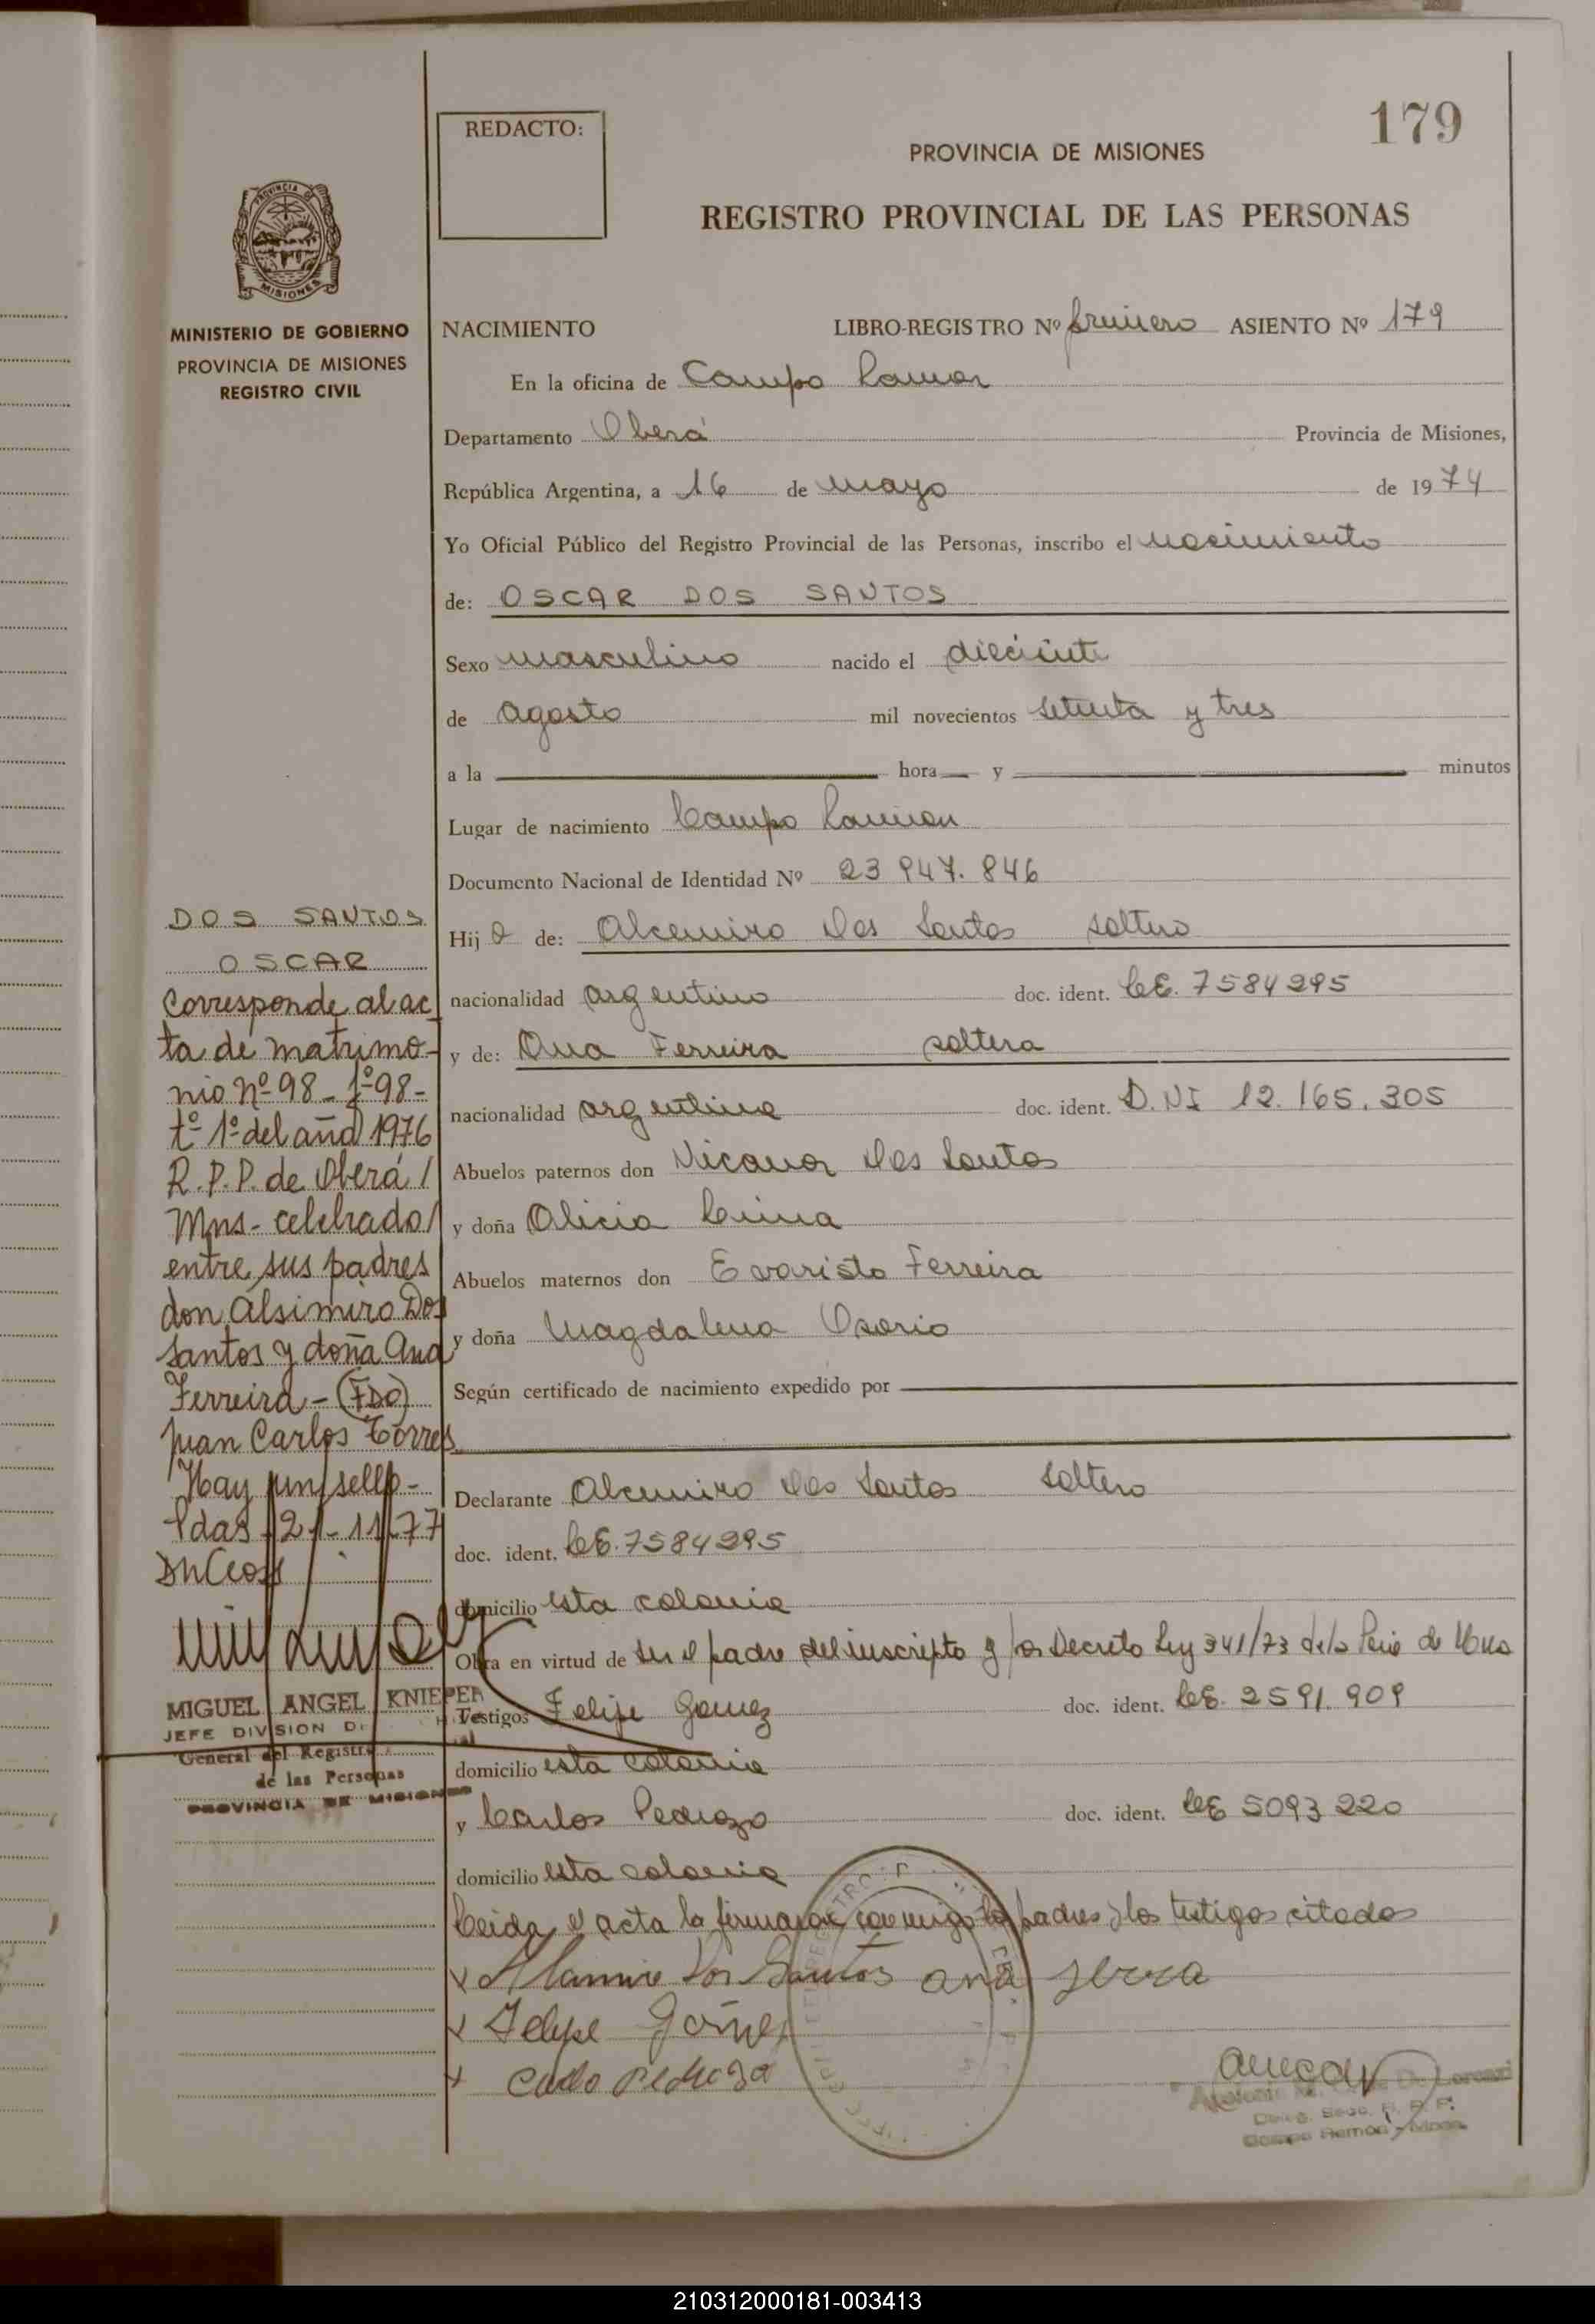 179
REDACTO:
PROVINCIA DE MISIONES
REGISTRO PROVINCIAL DE LAS PERSONAS
PROVINCIA DE
MISIONES
MINISTERIO DE GOBIERNO
PROVINCIA DE MISIONES
REGISTRO CIVIL
NACIMIENTO LIBRO-REGISTRO Nº primero ASIENTO Nº 179
En la oficina de Campo Ramon
Departamento Oberá Provincia de Misiones,
República Argentina, a 16 de mayo de 1974
Yo Oficial Público del Registro Provincial de las Personas, inscribo el nacimiento
de: OSCAR DOS SANTOS
Sexo masculino nacido el
de agosto mil novecientos setenta y tres
a la hora y minutos
Lugar de nacimiento Campo Ramon
Documento Nacional de Identidad Nº 23 947.846
Hijo de: Alcemiro Dos Santos soltero
nacionalidad argentino doc. ident. LE. 7584295
y de: Ana Ferreira soltera
nacionalidad argentina doc. ident. D.NI 12.165.305
Abuelos paternos don Nicanor Dos Santos
y doña Alicia
Abuelos maternos don Evaristo Ferreira
y doña Magdalena Osorio
Según certificado de nacimiento expedido por
Declarante Alcemiro Dos Santos soltero
doc. ident. LE. 7584295
domicilio esta colonia
Obra en virtud de ser el padre del inscripto y por Decreto Ley 341/73 de la
Testigos Felipe Gomez doc. ident. LE. 2591.909
domicilio esta colonia
y Carlos Pedrozo doc. ident. LE 5093220
domicilio esta colonia
Leida el acta la firmaron conmigo los padres y los testigos citados
Dos Santos ana
Felipe Gomez
DOS SANTOS
OSCAR
Corresponde al ac
ta de matrimo-
nio Nº 98 - Fº 98 -
tº 1º del año 1976
R.P.P. de Oberá /
Mns - celebrado /
entre sus padres
don Alsimiro Dos
Santos y doña Ana
Ferreira - (FDO)
Juan Carlos Torres
Hay un sello -
Pdas 21-11-77
MIGUEL ANGEL KNIEPER
JEFE DIVISION
General del Registro
de las Personas
PROVINCIA DE MISIONES
210312000181-003413